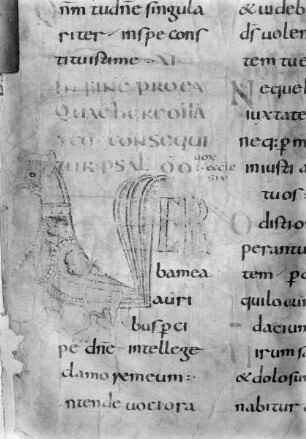 qnm tu dne singula
riter · in spe cons
tituisti me
IN FINE PRO EA
CONSEQUI
TUR PSAL uox eccle
VER
bamea
auri
bus pci
pe dne · intellege
clamorem meum:
ntende uoci ora
& uideb
ds uolen
tem tue
Neque
iuxta te
neq: pm
iniusti a
tuos:
Odisti o
perantu
tem pe
qui loqu
dacium
Uirum s
& dolosu
nabitur